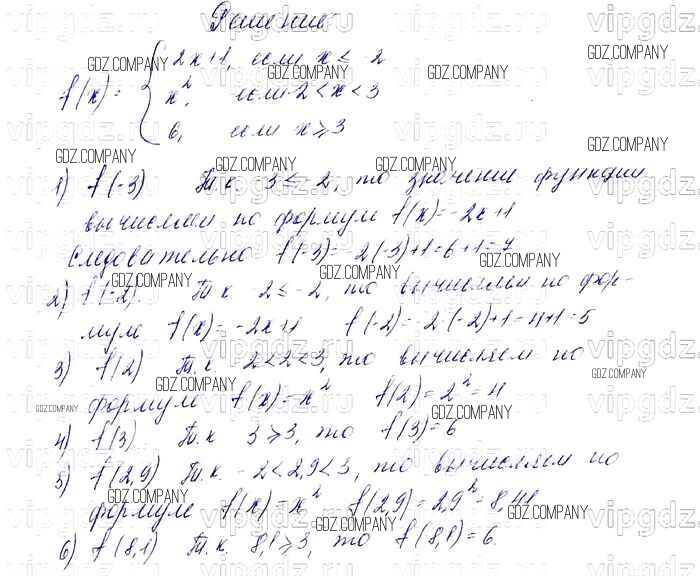 Решение
f(x) = { 2x+1, если x ≤ 2
x², если -2 < x < 3
6, если x ≥ 3
1) f(-3) Т.к. 3 ≤ -2, то значение функции
вычисляем по формуле f(x) = -2x+1
Следовательно f(-3) = -2(-3)+1 = 6+1 = 7
2) f(-2). Т.к. 2 ≤ -2, то вычисляем по фор-
муле f(x) = -2x+1 f(-2) = -2·(-2)+1 = 4+1 = 5
3) f(2) Т.к. 2<2<3, то вычисляем по
формуле f(x) = x² f(2) = 2² = 4
4) f(3) Т.к. 3 ≥ 3, то f(3) = 6
5) f(2,9) Т.к. -2<2,9<3, то вычисляем по
формуле f(x) = x² f(2,9) = 2,9² = 8,41
6) f(8,1) Т.к. 8,1 ≥ 3, то f(8,1) = 6.
GDZ.COMPANY
vipgdz.ru